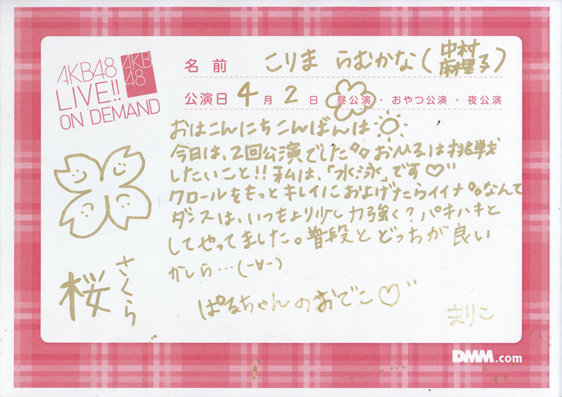 AKB48
LIVE!!
ON DEMAND
AKB
48
名前 こりま らむかな(中村麻里子)
公演日 4月2日 昼公演・おやつ公演・夜公演
おはこんにちこんばんは
今日は、2回公演でした。おMCは挑戦
したいこと!!私は、「水泳」です♡
クロールをもっとキレイにおよげたらイイナ。なんて
ダンスは、いつもより少し力強く?パキパキと
してやってました。普段とどっちが良い
かしら…(-∀-)
ぱるちゃんのおでこ♡
まりこ
さくら
桜
DMM.com